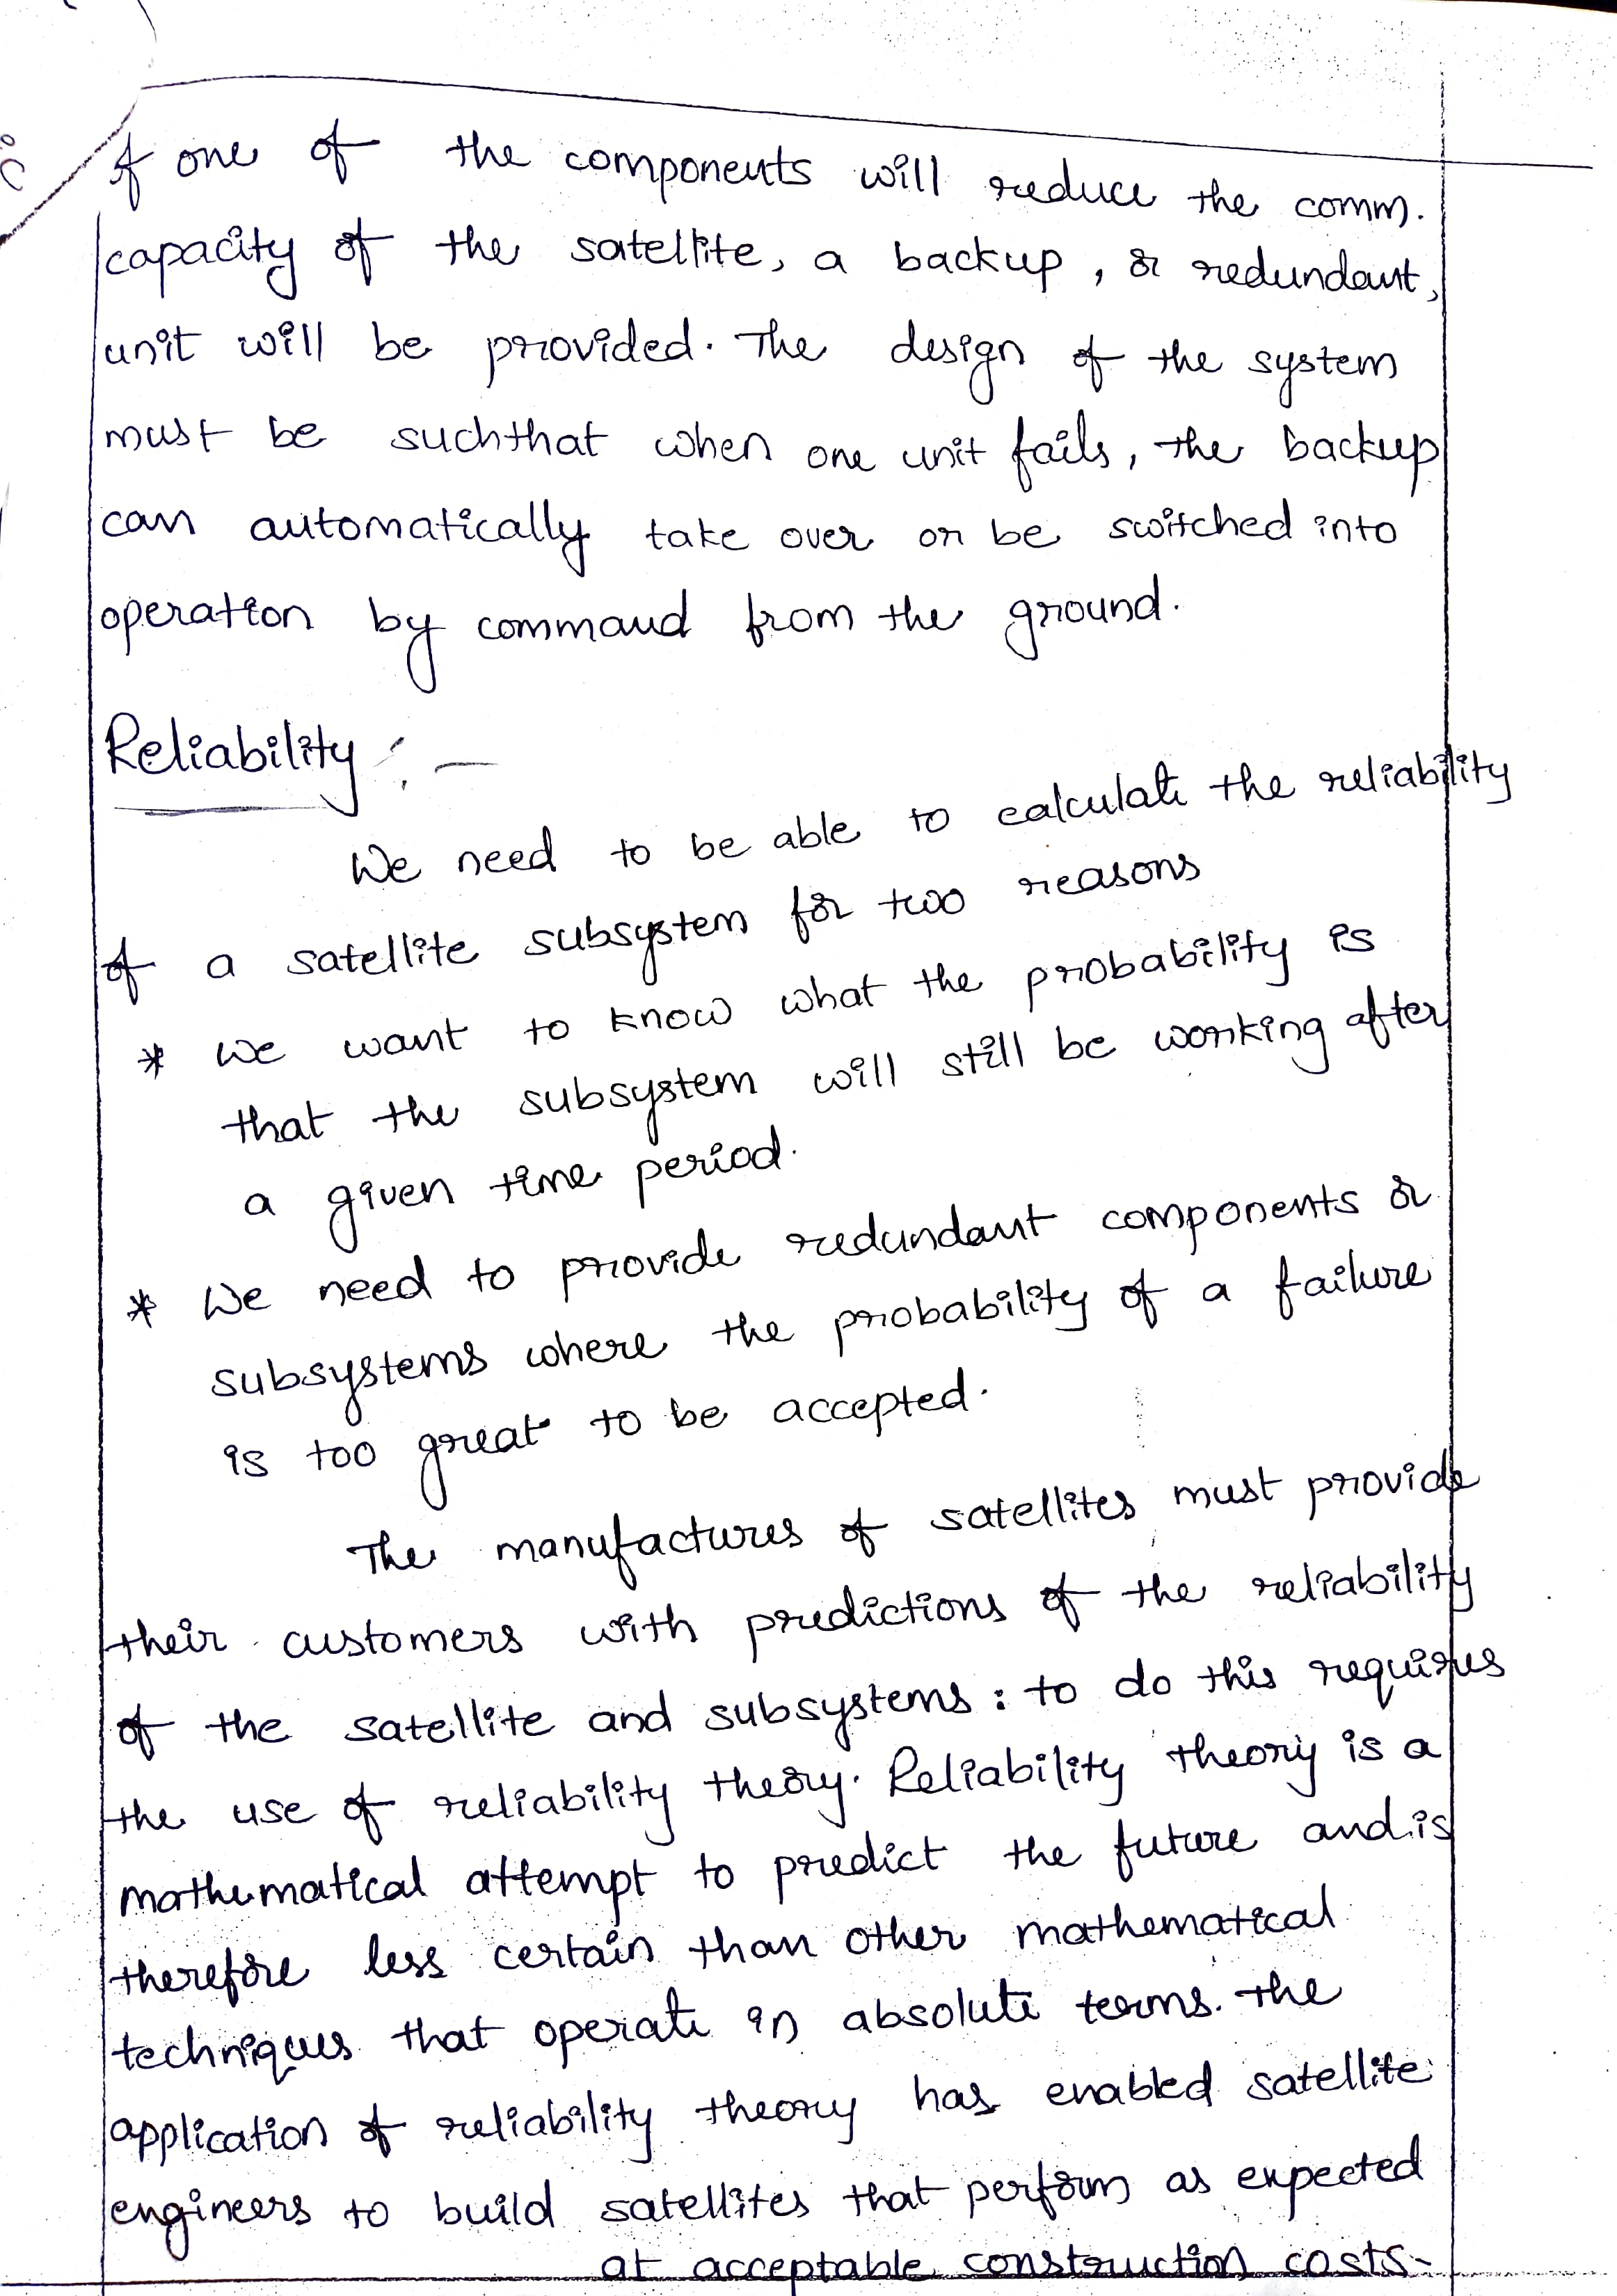 of one of the components will reduce the comm.
capacity of the satellite, a backup, or redundant,
unit will be provided. The design of the system
must be suchthat when one unit fails, the backup
can automatically take over or be switched into
operation by command from the ground.
Reliability :-
We need to be able to calculate the reliability
of a satellite subsystem for two reasons
* We want to know what the probability is
that the subsystem will still be working after
a given time period.
* We need to provide redundant components or
subsystems where the probability of a failure
is too great to be accepted.
The manufactures of satellites must provide
their customers with predictions of the reliability
of the satellite and subsystems : to do this requires
the use of reliability theory. Reliability theory is a
mathematical attempt to predict the future and is
therefore less certain than other mathematical
techniques that operate in absolute terms. The
application of reliability theory has enabled satellite
engineers to build satellites that perform as expected
at acceptable construction costs.